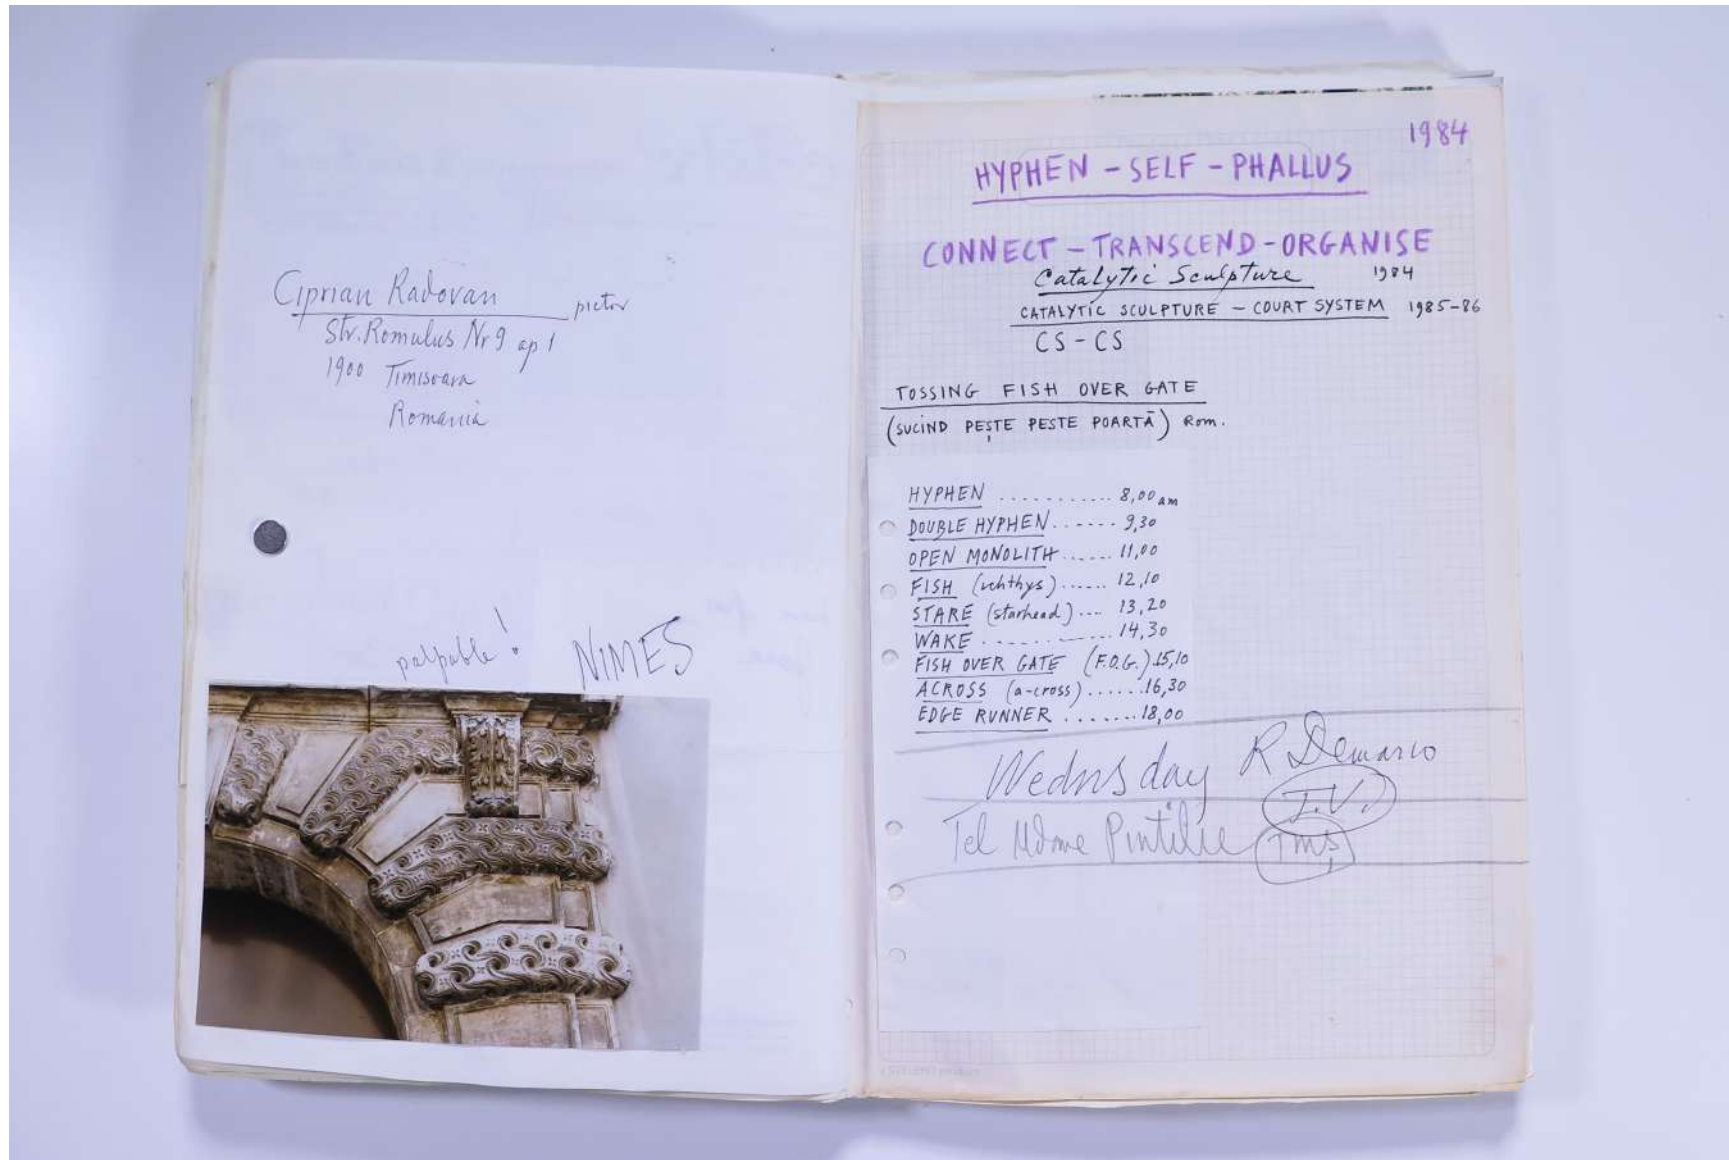 Ciprian Radovan pictor
Str. Romulus Nr 9 ap 1
1900 Timisoara
Romania
palpable!
NIMES
1984
HYPHEN - SELF - PHALLUS
CONNECT - TRANSCEND - ORGANISE
Catalytic Sculpture 1984
CATALYTIC SCULPTURE - COURT SYSTEM 1985-86
CS - CS
TOSSING FISH OVER GATE
(SUCIND PEȘTE PESTE POARTĂ) Rom.
HYPHEN ............ 8,00 am
DOUBLE HYPHEN ...... 9,30
OPEN MONOLITH ...... 11,00
FISH (ichthys) ...... 12,10
STARE (starhead) .... 13,20
WAKE ............ 14,30
FISH OVER GATE (F.O.G.) 15,10
ACROSS (a-cross) ...... 16,30
EDGE RUNNER ........ 18,00
Wednsday R Demarco
T.V.
Tel Pintilie Tmș